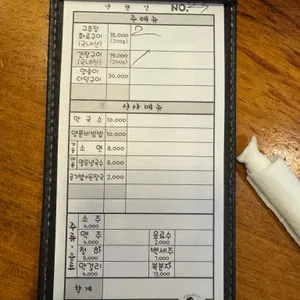 년 월 일 NO.
주메뉴
고추장
화로구이
(국내산)
18,000
(200g)
2
간장구이
(국내산)
19,000
(200g)
양송이
더덕구이
30,000
식사메뉴
막국수 10,000
소면 8,000
6,000
공기밥+된장국 2,000
주류·음료
소주
4,000
맥주
4,000
음료수
2,000
천하
5,000
백세주
7,000
막걸리
4,000
복분자
13,000
합계